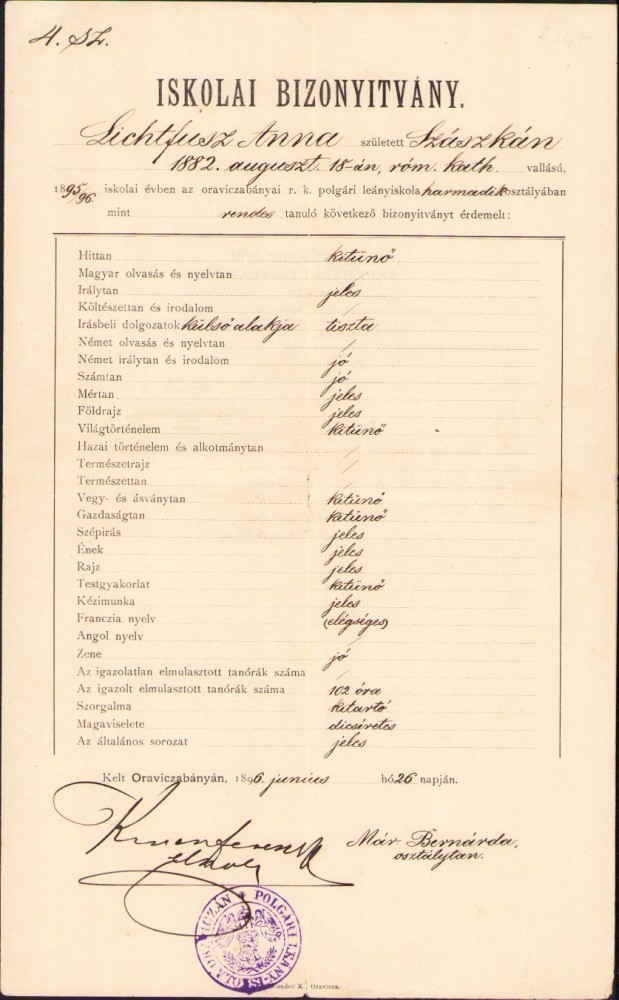 4. sz.
ISKOLAI BIZONYITVÁNY.
Lichtfusz Anna született Szászkán
1882. auguszt. 18-án, róm. kath. vallású,
1895/96 iskolai évben az oraviczabányai r. k. polgári leányiskola harmadik osztályában
mint rendes tanuló következő bizonyitványt érdemelt:
Hittan kitünő
Magyar olvasás és nyelvtan /
Irálytan jeles
Költészettan és irodalom /
Irásbeli dolgozatok külső alakja tiszta
Német olvasás és nyelvtan /
Német irálytan és irodalom jó
Számtan jó
Mértan jeles
Földrajz jeles
Világtörténelem kitünő
Hazai történelem és alkotmánytan /
Természetrajz /
Természettan /
Vegy- és ásványtan kitünő
Gazdaságtan kitünő
Szépirás jeles
Ének jeles
Rajz jeles
Testgyakorlat kitünő
Kézimunka jeles
Franczia nyelv (elégséges)
Angol nyelv /
Zene jó
Az igazolatlan elmulasztott tanórák száma /
Az igazolt elmulasztott tanórák száma 102 óra
Szorgalma kitartó
Magaviselete dicséretes
Az általános sorozat jeles
Kelt Oraviczabányán, 1896 junius hó 26 napján.
Már. Bernárda,
osztálytan.
POLGÁRI LEÁNY-ISKOLA ORAVICZÁN
Wunder K., Oravicza.